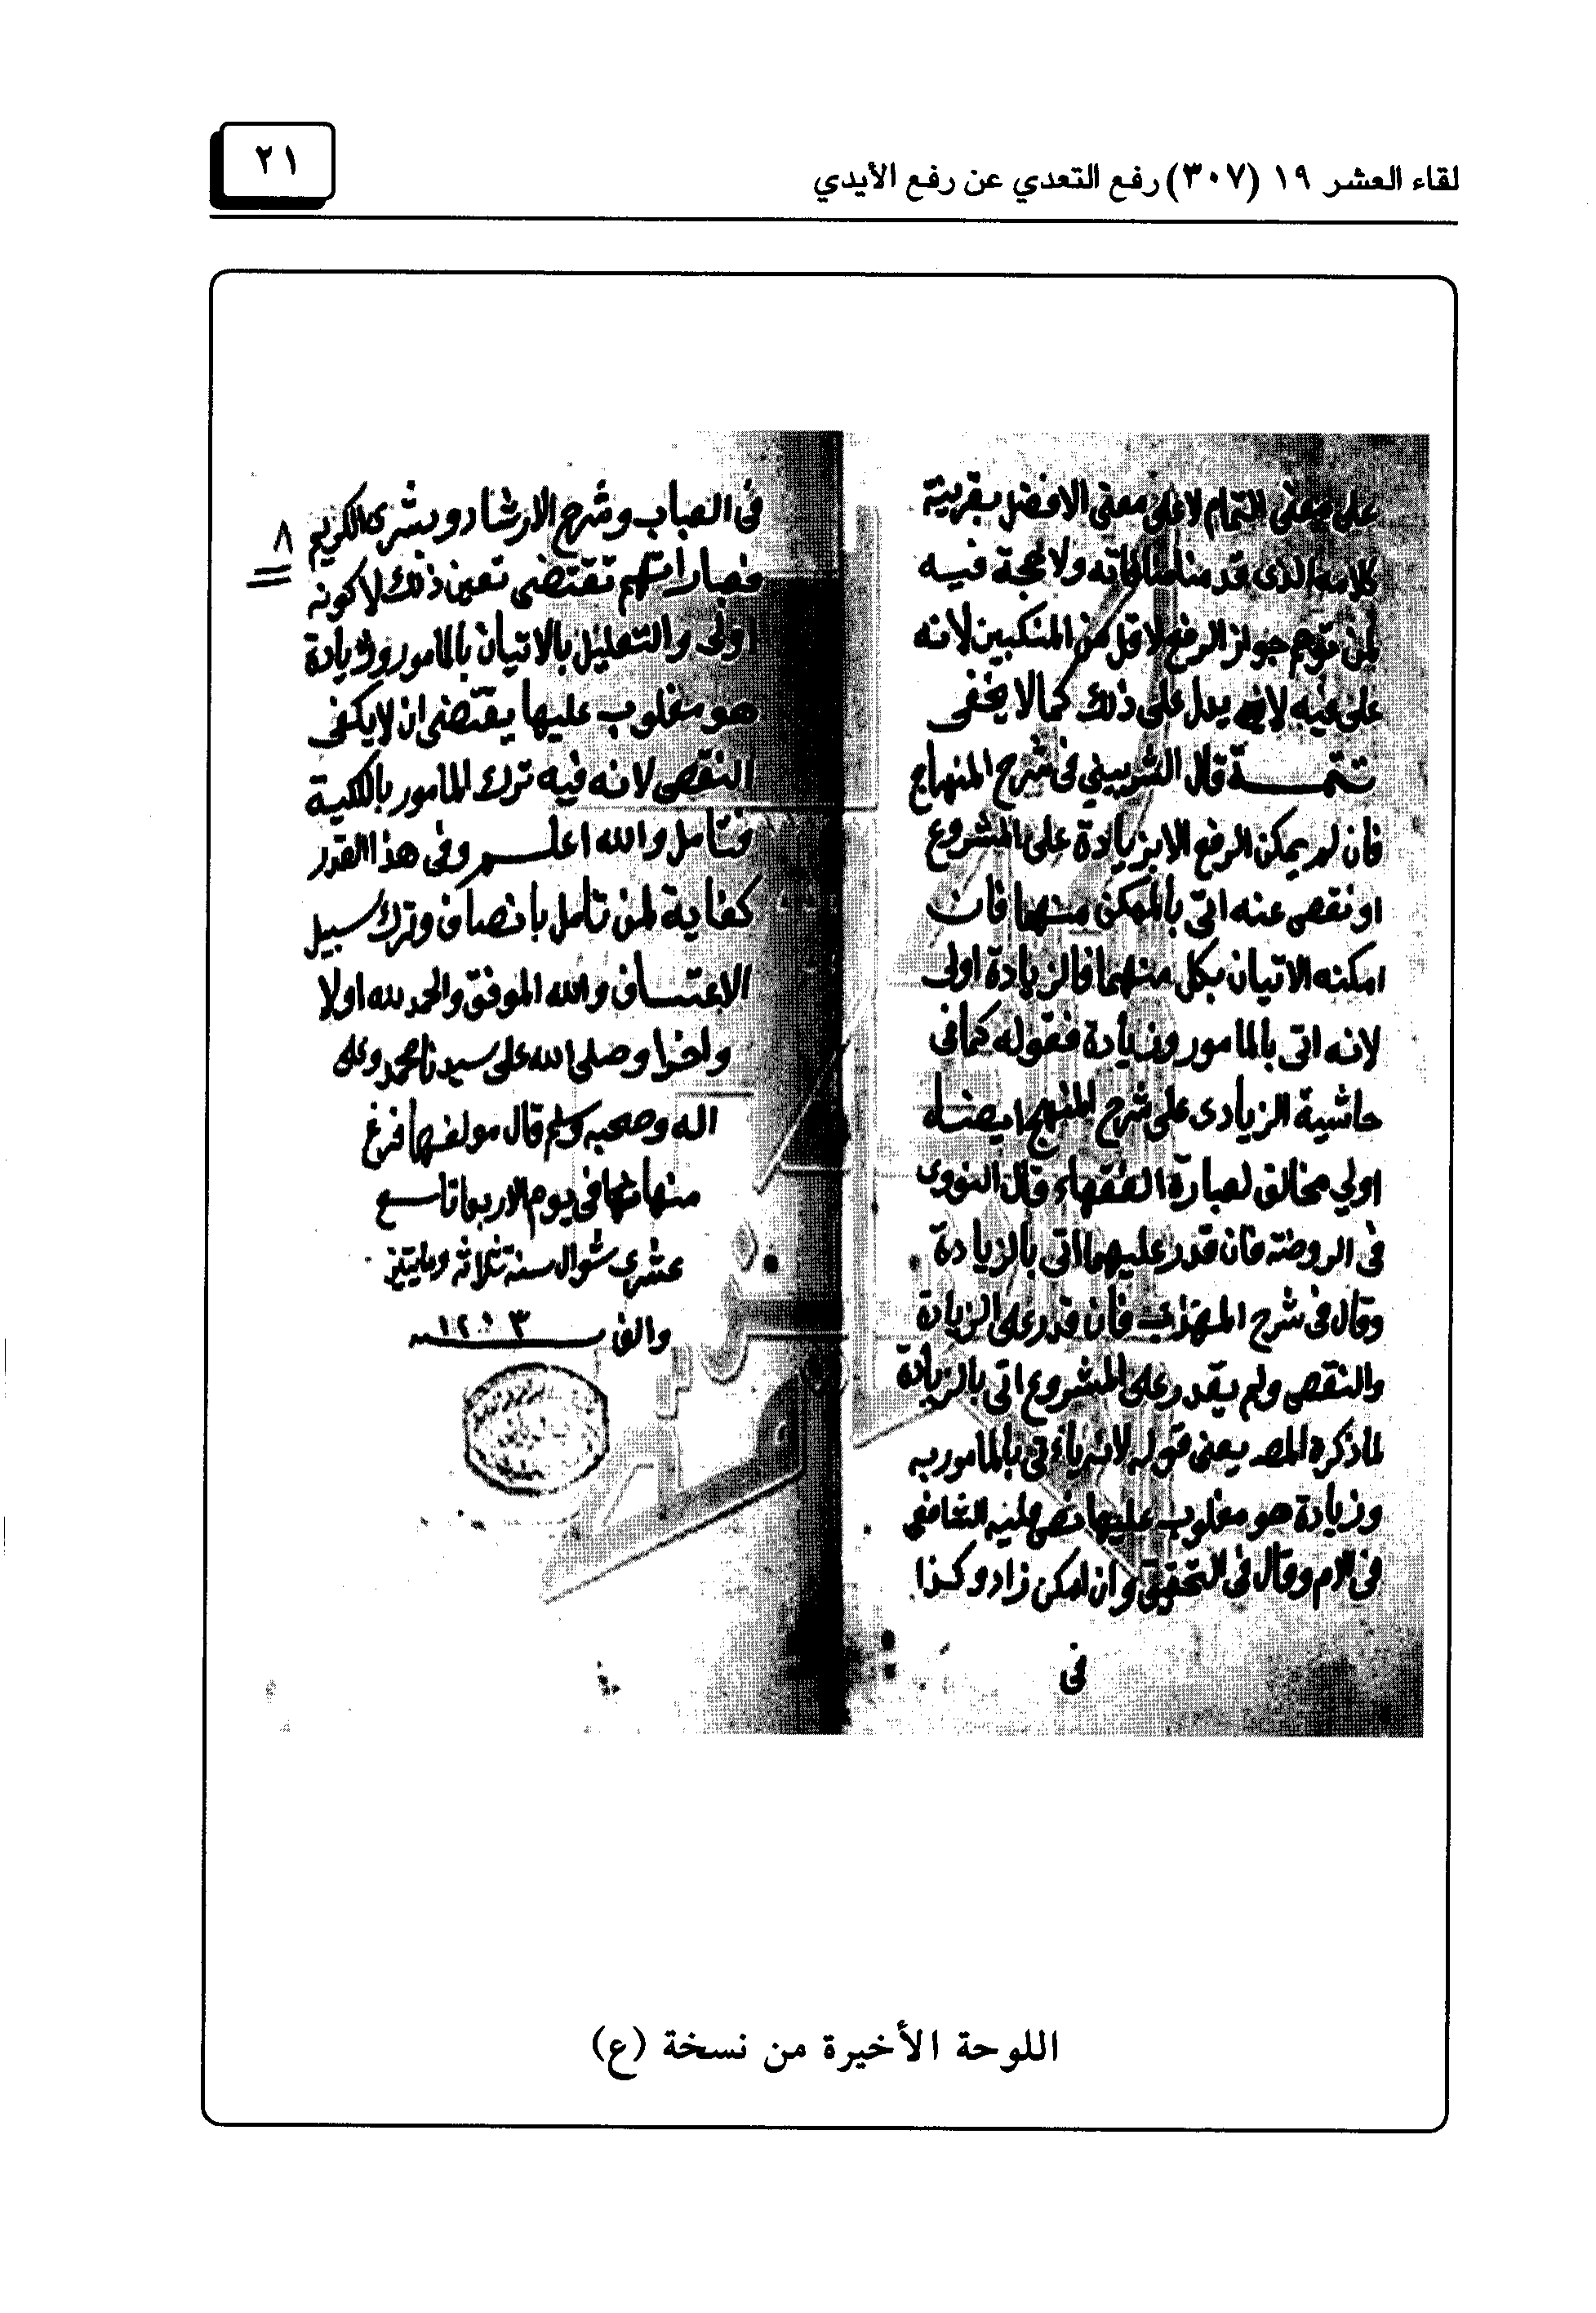 لقاء العشر ١٩ (٣٠٧) رفع التعدي عن رفع الأيدي
٢١
على معنى التمام لا على معنى الافضل بقرينة
كلامه الذى قدمنا ولا حجة فيه
لمن توهم جواز الرفع لاقل من المنكبين لانه
على يدل على ذلك كما لا يخفى
تتمـــة قال الشربيني فى شرح المنهاج
فان لم يمكن الرفع الا بزيادة على المشروع
او نقص عنه اتى بالممكن منهما فان
امكنه الاتيان بكل منهما فالزيادة اولى
لانه اتى بالمامور وزيادة فقوله كما فى
حاشية الزيادى على شرح المنهج ايضا
اولي مخالف لعبارة الفقهاء قال النووى
فى الروضة فان قدر عليهما اتى بالزيادة
وقال فى شرح المهذب فان قدر على الزيادة
والنقص ولم يقدر على المشروع اتى بالزيادة
لما ذكره المصـ يعنى قوله لانه ياءتى بالمامور به
وزيادة هو مغلوب عليها نص عليه الشافعي
فى الام وقال فى التحقيق وان امكن زاد وكذا
فى
٨
فى العباب وشرح الارشاد وبشرى الكريم
فعباراتهم تقتضى تعين ذلك لا كونه
اولى والتعليل بالاتيان بالمامور وزيادة
هو مغلوب عليها يقتضى ان لا يكفى
النقص لانه فيه ترك المامور بالكلية
فتامل والله اعلـــم وفى هذا القدر
كفاية لمن تامل بانصاف وترك سبيل
الاعتساف والله الموفق والحمد لله اولا
واخرا وصلى الله على سيدنا محمد وعلى
اله وصحبه وسلم قال مولفها فرغ
منها فى يوم الاربعا تاسع
عشرى شوال سنة ثلاثة ومايتين
والف ١٢٠٣
اللوحة الأخيرة من نسخة (ع)